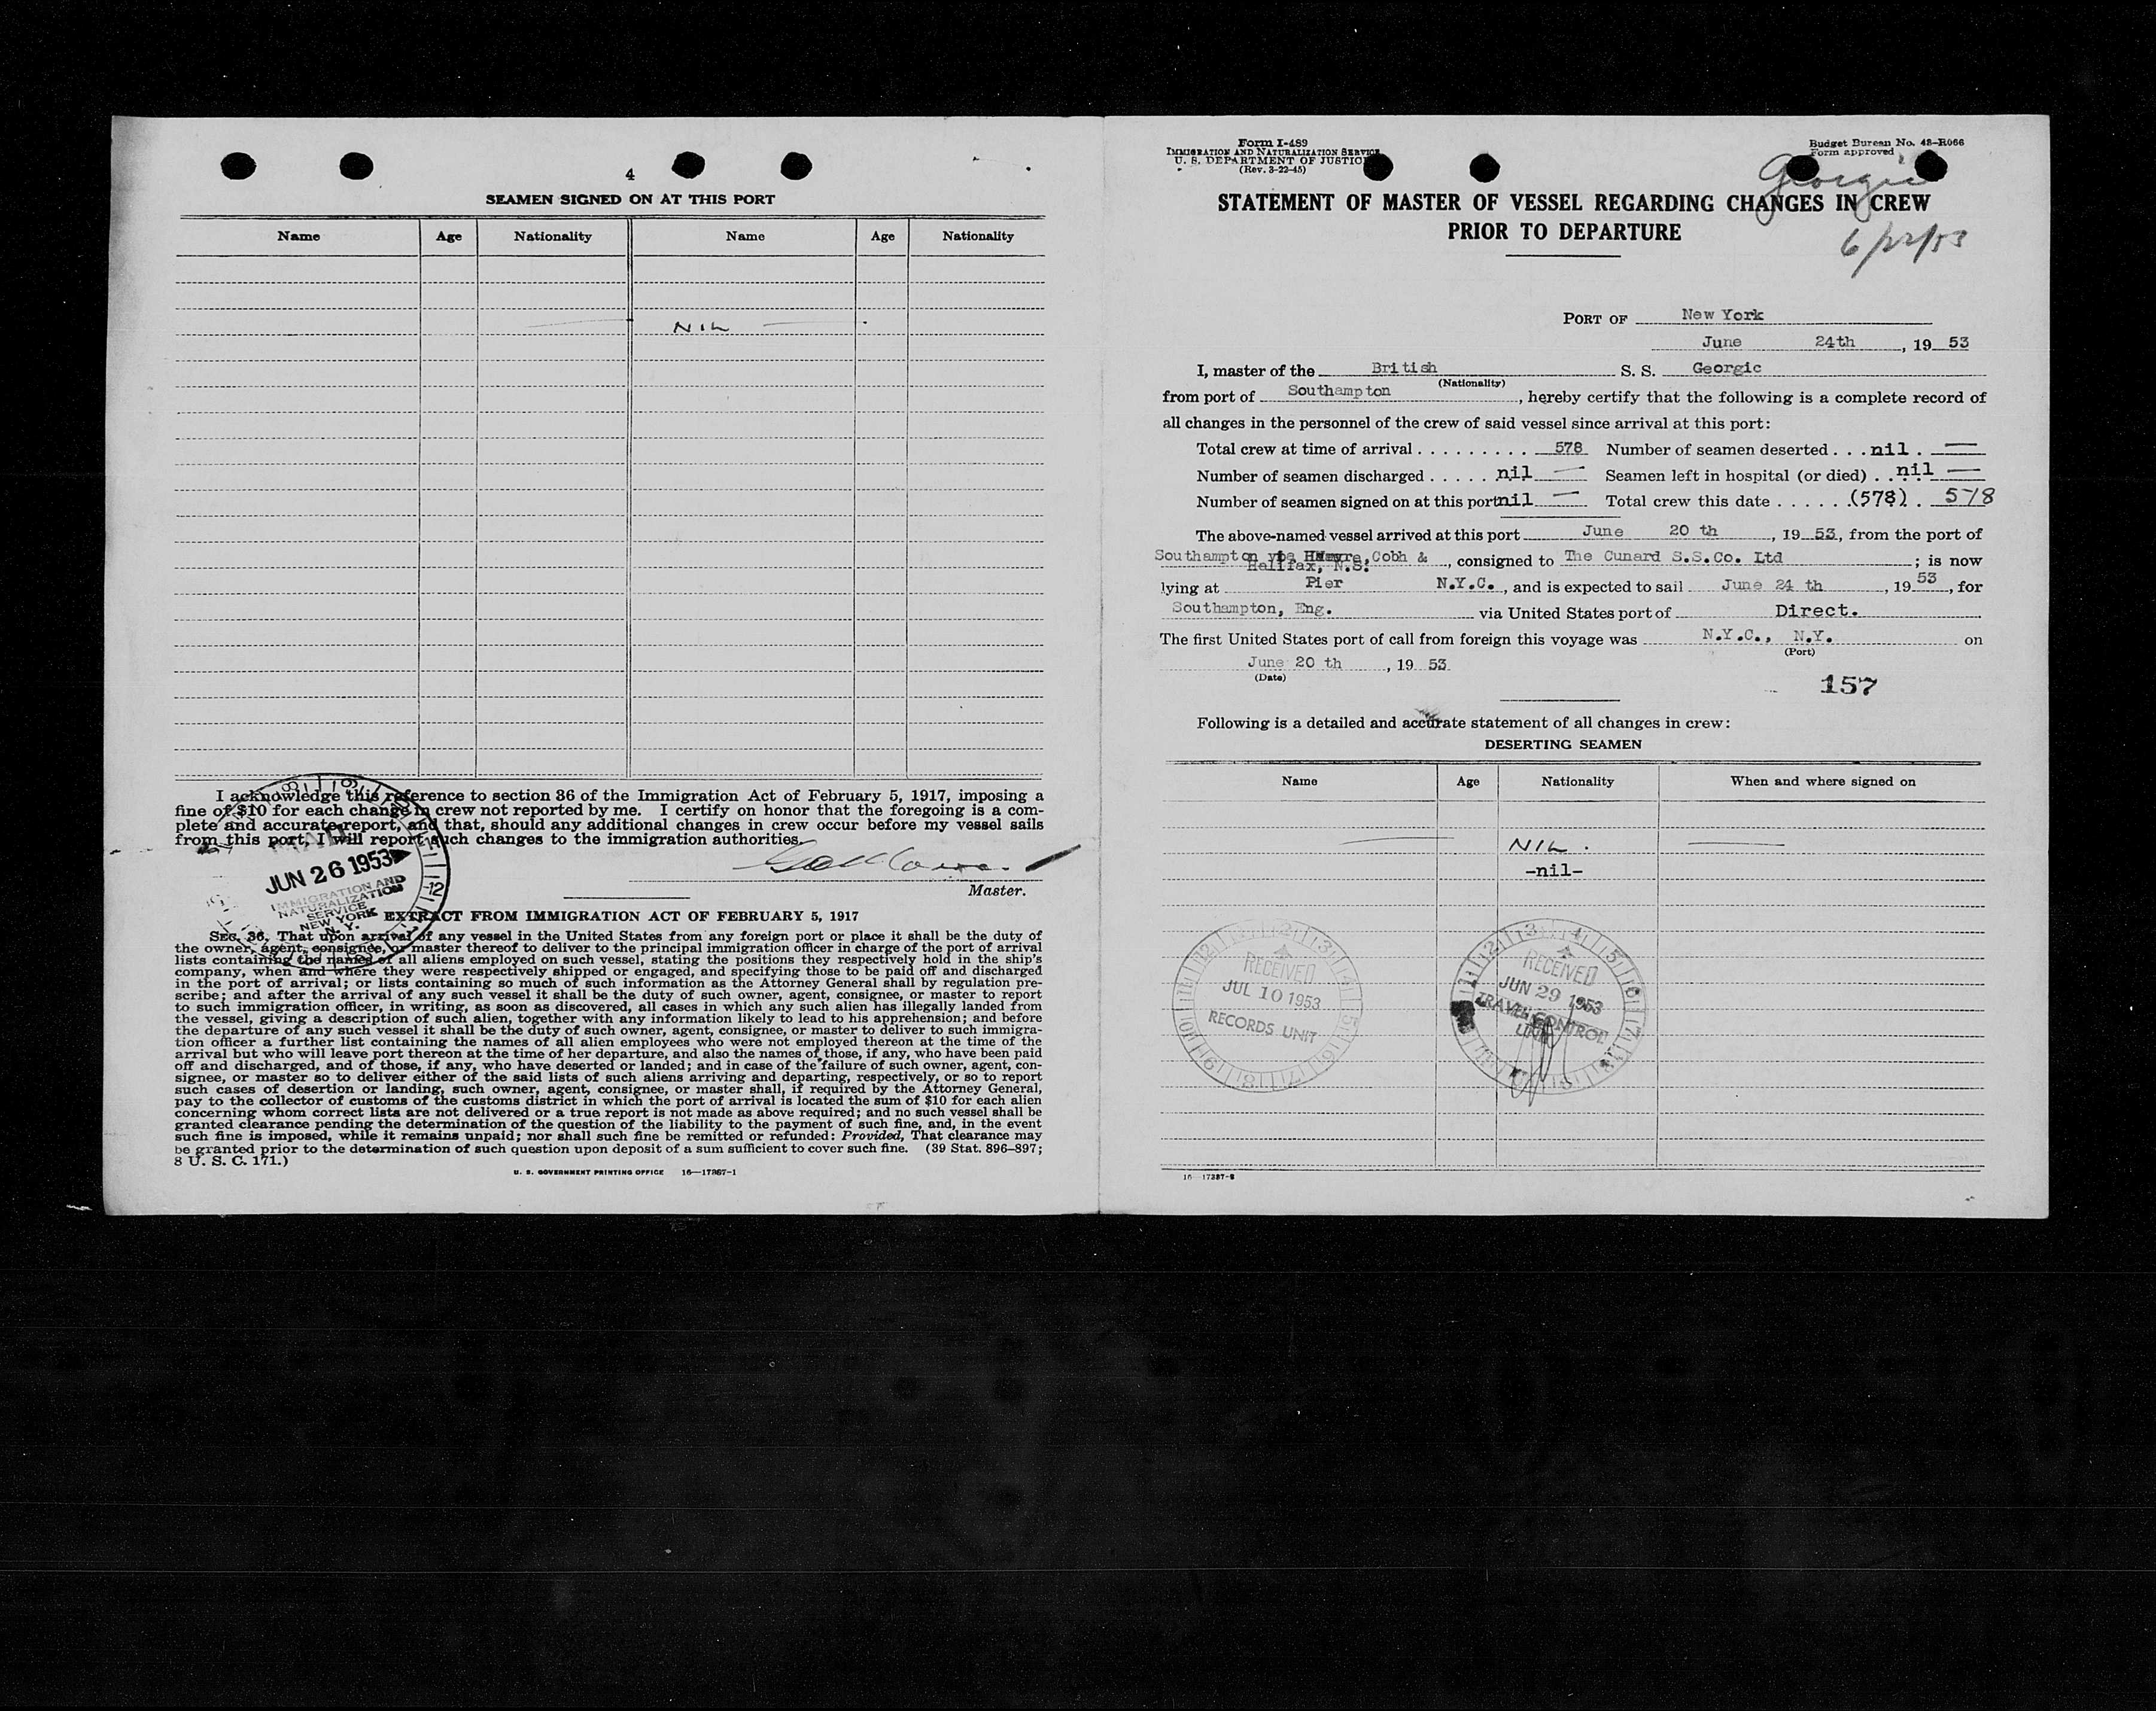 4
SEAMEN SIGNED ON AT THIS PORT
Name Age Nationality Name Age Nationality
NIL
I acknowledge this reference to section 36 of the Immigration Act of February 5, 1917, imposing a
fine of $10 for each change in crew not reported by me. I certify on honor that the foregoing is a com-
plete and accurate report, and that, should any additional changes in crew occur before my vessel sails
from this port, I will report such changes to the immigration authorities.
JUN 26 1953
IMMIGRATION AND
NATURALIZATION
SERVICE
NEW YORK
N. Y.
Master.
EXTRACT FROM IMMIGRATION ACT OF FEBRUARY 5, 1917
SEC. 36. That upon arrival of any vessel in the United States from any foreign port or place it shall be the duty of
the owner, agent, consignee, or master thereof to deliver to the principal immigration officer in charge of the port of arrival
lists containing the names of all aliens employed on such vessel, stating the positions they respectively hold in the ship's
company, when and where they were respectively shipped or engaged, and specifying those to be paid off and discharged
in the port of arrival; or lists containing so much of such information as the Attorney General shall by regulation pre-
scribe; and after the arrival of any such vessel it shall be the duty of such owner, agent, consignee, or master to report
to such immigration officer, in writing, as soon as discovered, all cases in which any such alien has illegally landed from
the vessel, giving a description of such alien, together with any information likely to lead to his apprehension; and before
the departure of any such vessel it shall be the duty of such owner, agent, consignee, or master to deliver to such immigra-
tion officer a further list containing the names of all alien employees who were not employed thereon at the time of the
arrival but who will leave port thereon at the time of her departure, and also the names of those, if any, who have been paid
off and discharged, and of those, if any, who have deserted or landed; and in case of the failure of such owner, agent, con-
signee, or master so to deliver either of the said lists of such aliens arriving and departing, respectively, or so to report
such cases of desertion or landing, such owner, agent, consignee, or master shall, if required by the Attorney General,
pay to the collector of customs of the customs district in which the port of arrival is located the sum of $10 for each alien
concerning whom correct lists are not delivered or a true report is not made as above required; and no such vessel shall be
granted clearance pending the determination of the question of the liability to the payment of such fine, and, in the event
such fine is imposed, while it remains unpaid; nor shall such fine be remitted or refunded: Provided, That clearance may
be granted prior to the determination of such question upon deposit of a sum sufficient to cover such fine. (39 Stat. 896–897;
8 U. S. C. 171.)
U. S. GOVERNMENT PRINTING OFFICE 16—17387-1
Form I-489
IMMIGRATION AND NATURALIZATION SERVICE
U. S. DEPARTMENT OF JUSTICE
(Rev. 3-22-45)
Budget Bureau No. 43-R066
Form approved
Georgic
STATEMENT OF MASTER OF VESSEL REGARDING CHANGES IN CREW
PRIOR TO DEPARTURE
6/22/53
PORT OF New York
June 24th, 19 53
I, master of the British S. S. Georgic
(Nationality)
from port of Southampton, hereby certify that the following is a complete record of
all changes in the personnel of the crew of said vessel since arrival at this port:
Total crew at time of arrival . . . . . . . . . 578 Number of seamen deserted . . . nil . —
Number of seamen discharged . . . . . nil — Seamen left in hospital (or died) . . nil —
Number of seamen signed on at this port nil — Total crew this date . . . . . (578) . 578
The above-named vessel arrived at this port June 20 th, 19 53, from the port of
Southampton via Havre, Cobh &
Halifax, N.S., consigned to The Cunard S.S.Co. Ltd ; is now
lying at Pier N.Y.C., and is expected to sail June 24 th, 19 53, for
Southampton, Eng. via United States port of Direct.
The first United States port of call from foreign this voyage was N.Y.C., N.Y. on
(Port)
June 20 th, 19 53.
(Date)
157
Following is a detailed and accurate statement of all changes in crew:
DESERTING SEAMEN
Name Age Nationality When and where signed on
NIL.
-nil-
RECEIVED
JUL 10 1953
RECORDS UNIT
RECEIVED
JUN 29 1953
TRAVEL CONTROL
UNIT
16—17387-2